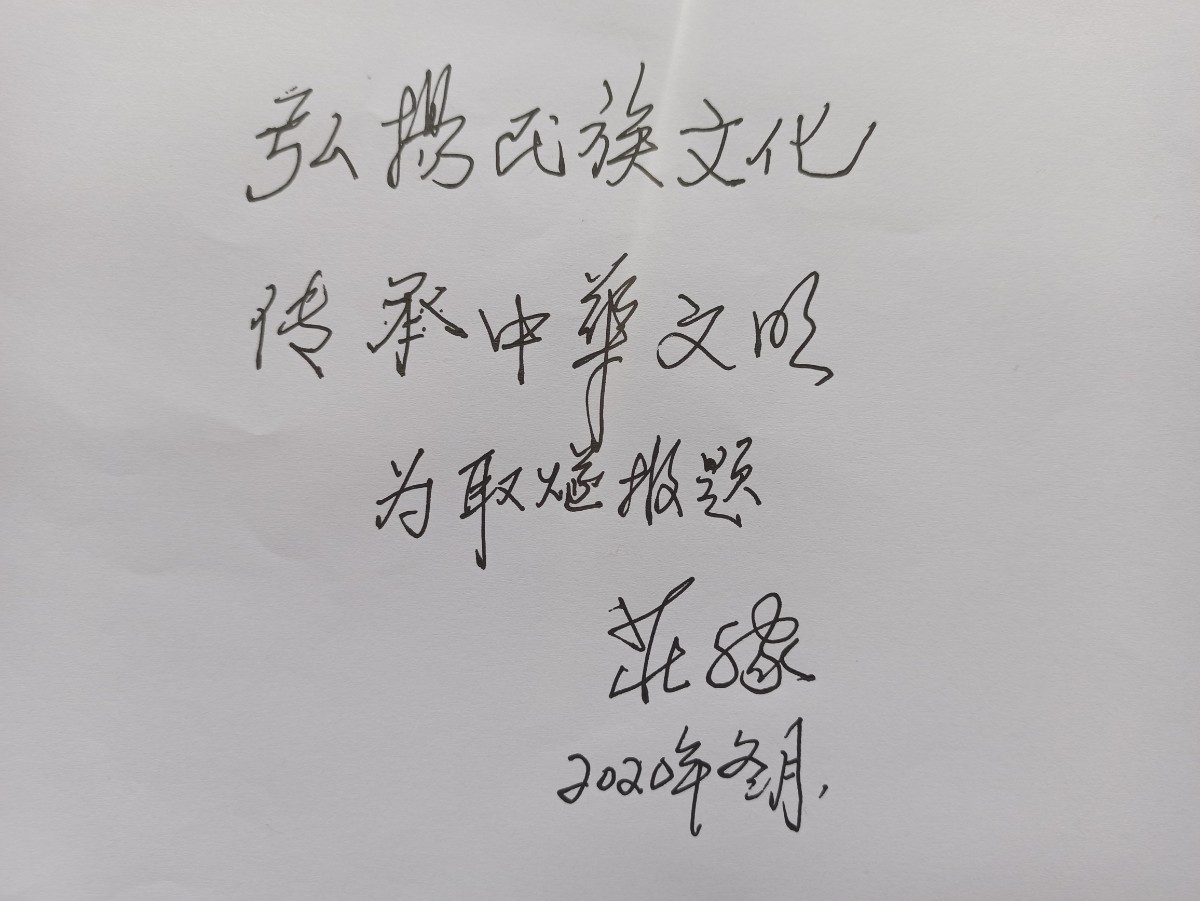 弘揚民族文化
传承中华文明
为取燧报题
莊缘
2020年冬月.